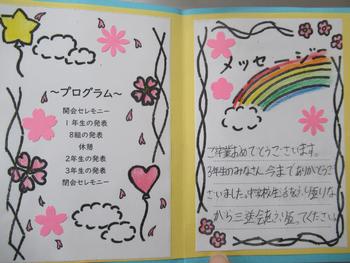 ～プログラム～
開会セレモニー
1年生の発表
8組の発表
休憩
2年生の発表
3年生の発表
閉会セレモニー
メッセージ
ご卒業おめでとうございます。
3年生のみなさん、今までありがとうござ
いました。中学校生活をふり返りな
から三送会を
ください。